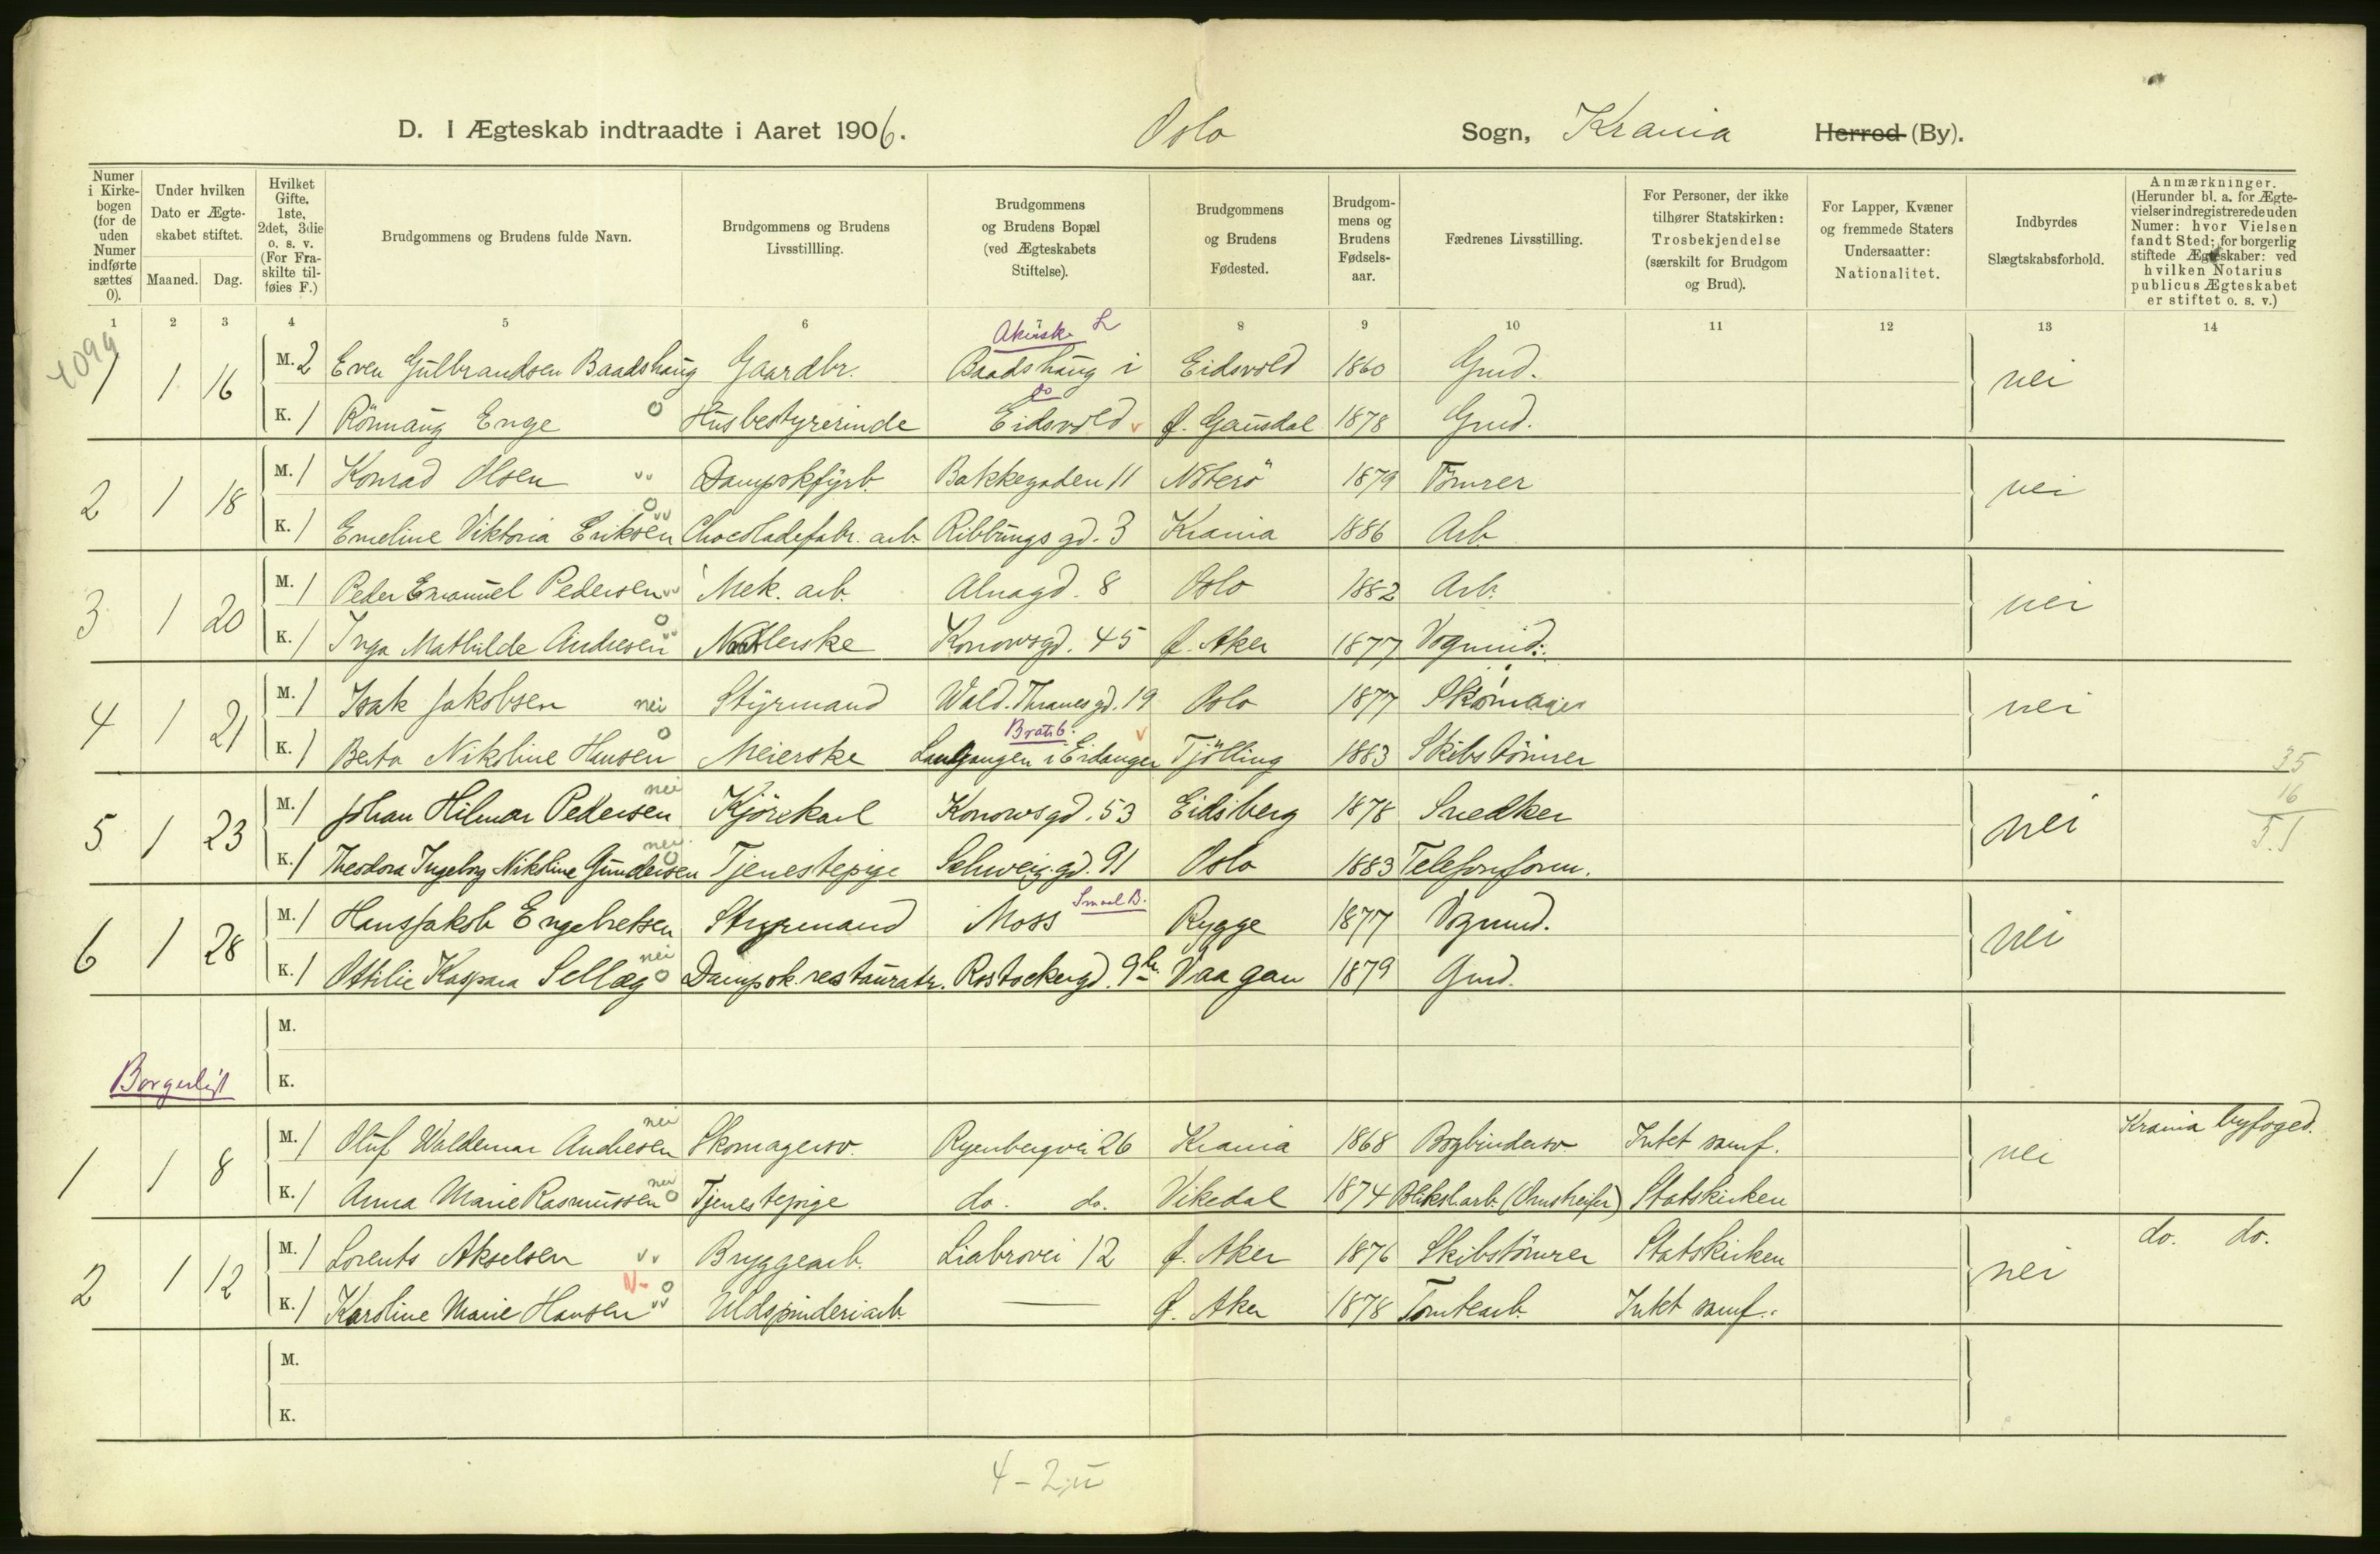 D. I Ægteskab indtraadte i Aaret 1906. Oslo Sogn, Krania Herred (By).
Numer i Kirkebogen (for de uden Numer indførte sættes 0).
Under hvilken Dato er Ægteskabet stiftet.
Maaned. Dag.
Hvilket Gifte. 1ste, 2det, 3die o. s. v. (For Fraskilte tilføies F.)
Brudgommens og Brudens fulde Navn.
Brudgommens og Brudens Livsstillling.
Brudgommens og Brudens Bopæl (ved Ægteskabets Stiftelse).
Brudgommens og Brudens Fødested.
Brudgommens og Brudens Fødselsaar.
Fædrenes Livsstilling.
For Personer, der ikke tilhører Statskirken: Trosbekjendelse (særskilt for Brudgom og Brud).
For Lapper, Kvæner og fremmede Staters Undersaatter: Nationalitet.
Indbyrdes Slægtskabsforhold.
Anmærkninger. (Herunder bl. a. for Ægtevielser indregistrerede uden Numer: hvor Vielsen fandt Sted; for borgerlig stiftede Ægteskaber: ved hvilken Notarius publicus Ægteskabet er stiftet o. s. v.)
1 2 3 4 5 6 8 9 10 11 12 13 14
1099
Akersk. L
1 1 16 M. 2 Even Gulbrandsen Baadshaug Gaardbr. Baadshaug i Eidsvold 1860 Gmd. nei
do
K. 1 Rönnaug Enge o Husbestyrerinde Eidsvold v f. Gausdal 1878 Gmd.
2 1 18 M. 1 Konrad Olsen vv Dampskfyrb. Bakkegaden 11 Nöterö 1879 Tömrer nei
K. 1 Emeline Viktoria Eriksen o vv Chocoladefabr. arb. Ribbungs gd. 3 Krania 1886 Arb.
3 1 20 M. 1 Peder Emanuel Pedersen vv Mek. arb. Alnagd. 8 Oslo 1882 Arb. nei
K. 1 Inga Mathilde Andresen o vv Konowsgd. 45 f. Aker 1877 Vognmd.
4 1 21 M. 1 Isak Jakobsen nei Styrmand Wald. Thranes gd. 19 Oslo 1877 Skomager nei
Bratsb. v
K. 1 Berta Nikoline Hansen o Meierske Langangen i Eidanger Tjölling 1883 Skibstömrer
35
5 1 23 M. 1 Johan Hilmar Pedersen nei Kjörekarl Konowsgd. 53 Eidsberg 1878 Snedker nei
16
51
K. 1 Theodora Ingeborg Nikoline Gundersen nei o Tjenestepige Schweig. gd. 91 Oslo 1883 Telefonform.
Smaal B.
6 1 28 M. 1 Hans Jakob Engebretsen Styrmand Moss Rygge 1877 Vognmd. nei
K. 1 Ottilie Kaspara Sellæg nei o Dampsk. restauratr. Rostockergd. 9 b. Vaagan 1879 Gmd.
M.
Borgerligt
K.
1 1 8 M. 1 Oluf Waldemar Andresen nei Skomagersv. Ryenbergvei 26 Krania 1868 Bogbindersv. Intet samf. nei Krania byfoged.
K. 1 Anna Marie Rasmussen nei o Tjenestepige do. do. Vikedal 1874 Statskirken
2 1 12 M. 1 Lorents Akselsen vv Bryggearb. Liabrovei 12 f. Aker 1876 Skibstömrer Statskirken nei do. do.
K. 1 Karoline Marie Hansen o vv Uldspinderiarb. — f. Aker 1878 Tomtearb. Intet samf.
M.
K.